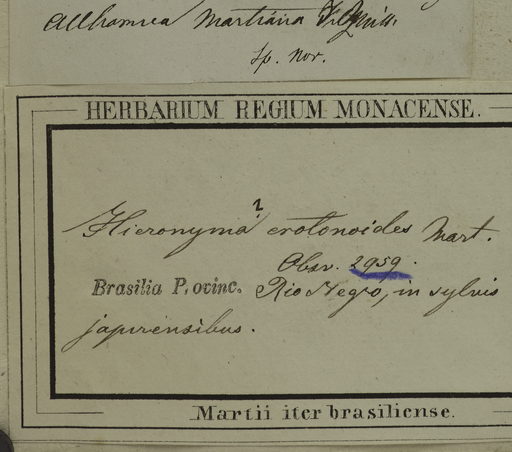 Martiana
Sp. nov.
HERBARIUM REGIUM MONACENSE.
?
Hieronyma crotonoides Mart.
Obsv. 2959.
Brasilia Provinc. Rio Negro, in sylvis
japurensibus.
Martii iter brasiliense.